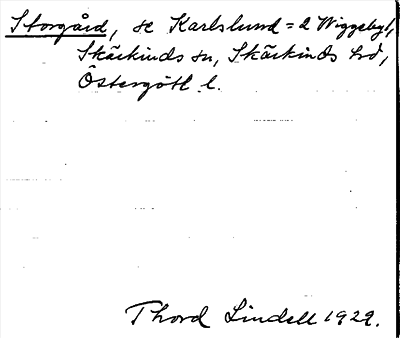 Storgård, se Karlslund = d Wiggeby 1,
Skärkinds sn, Skärkinds hd,
Östergötl l.
Thord Lindell 1929.